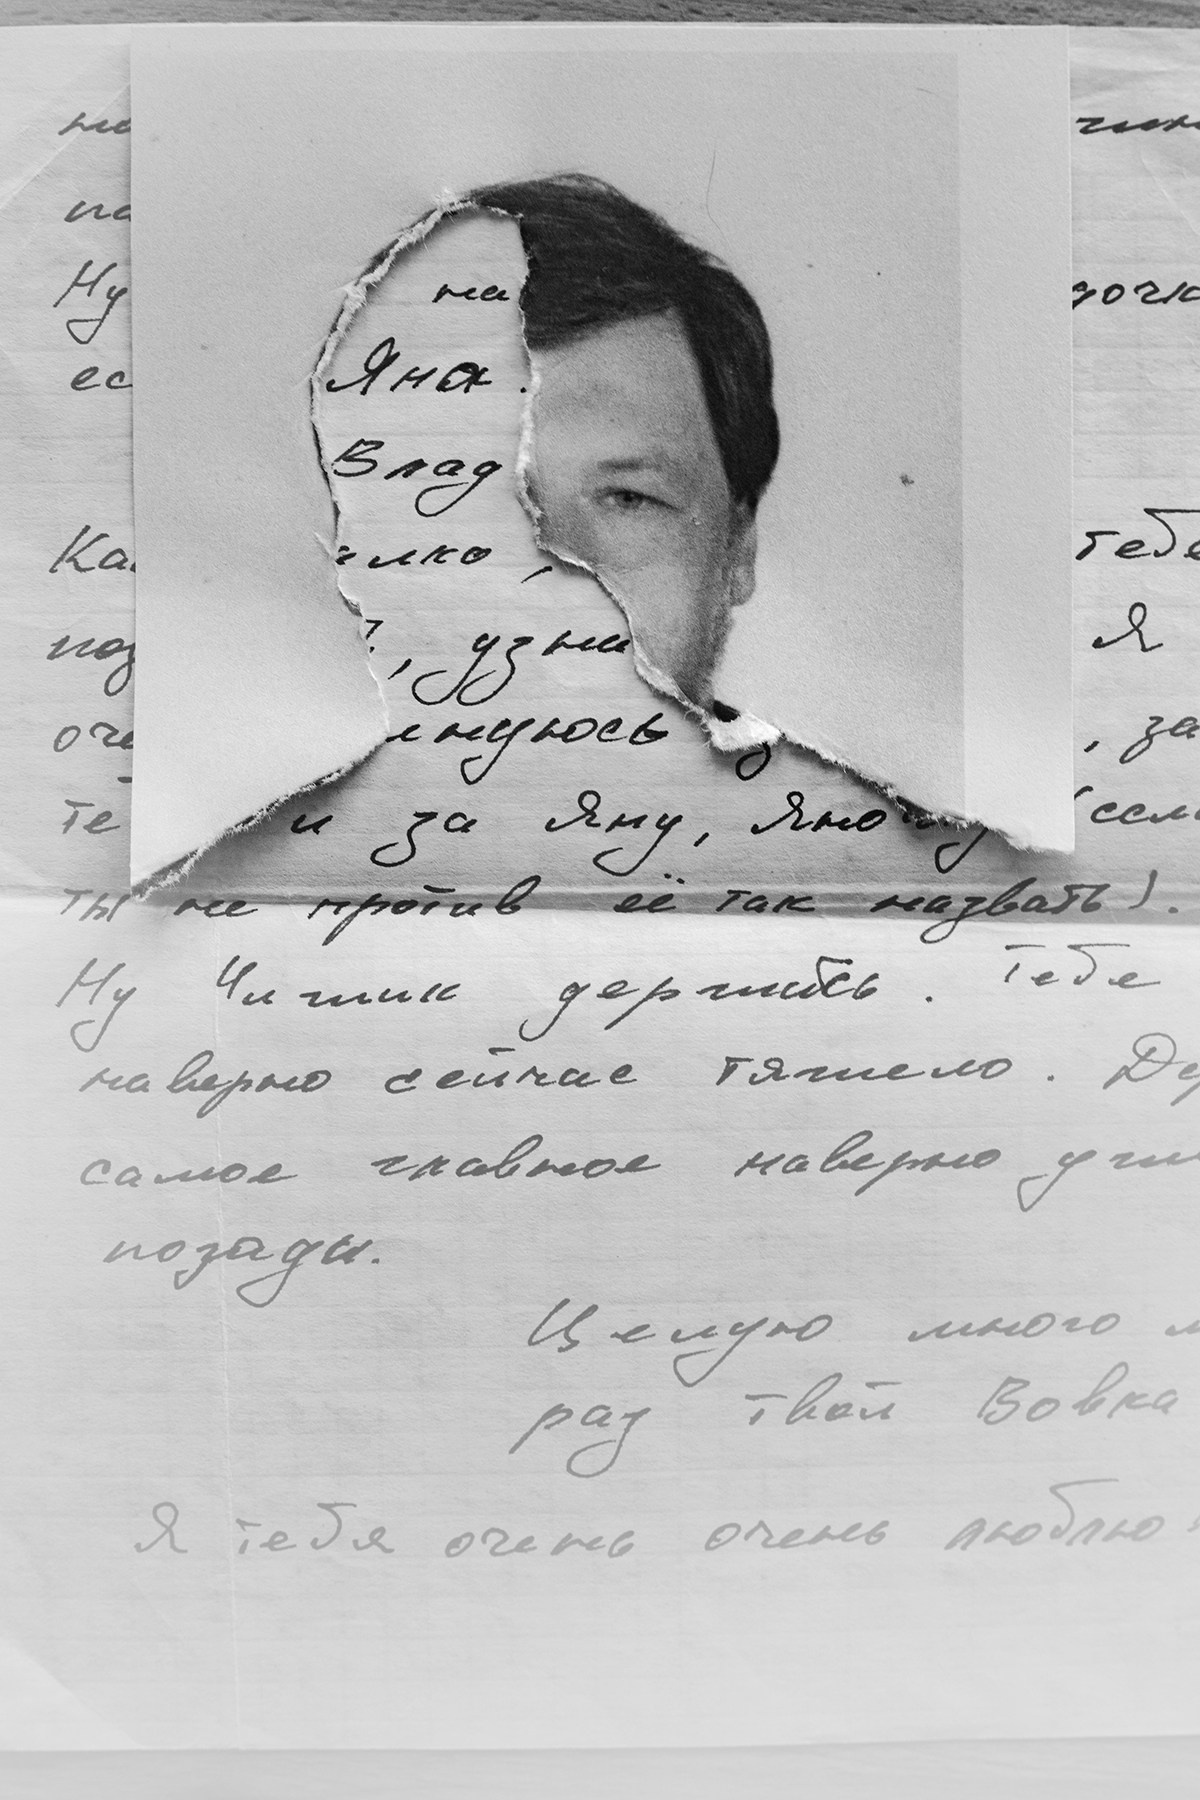 на
Ну дочк
ес
Яна.
Влад
Ка тебе
поз , узна Я
оче лнуюсь , за
те и за Яну, Яно (если
ты не против её так назвать).
Ну Чижик держись. Тебе
наверно сейчас тяжело. Де
самое главное наверно уже
позади.
Целую много м
раз твой Вовка
Я тебя очень очень люблю!